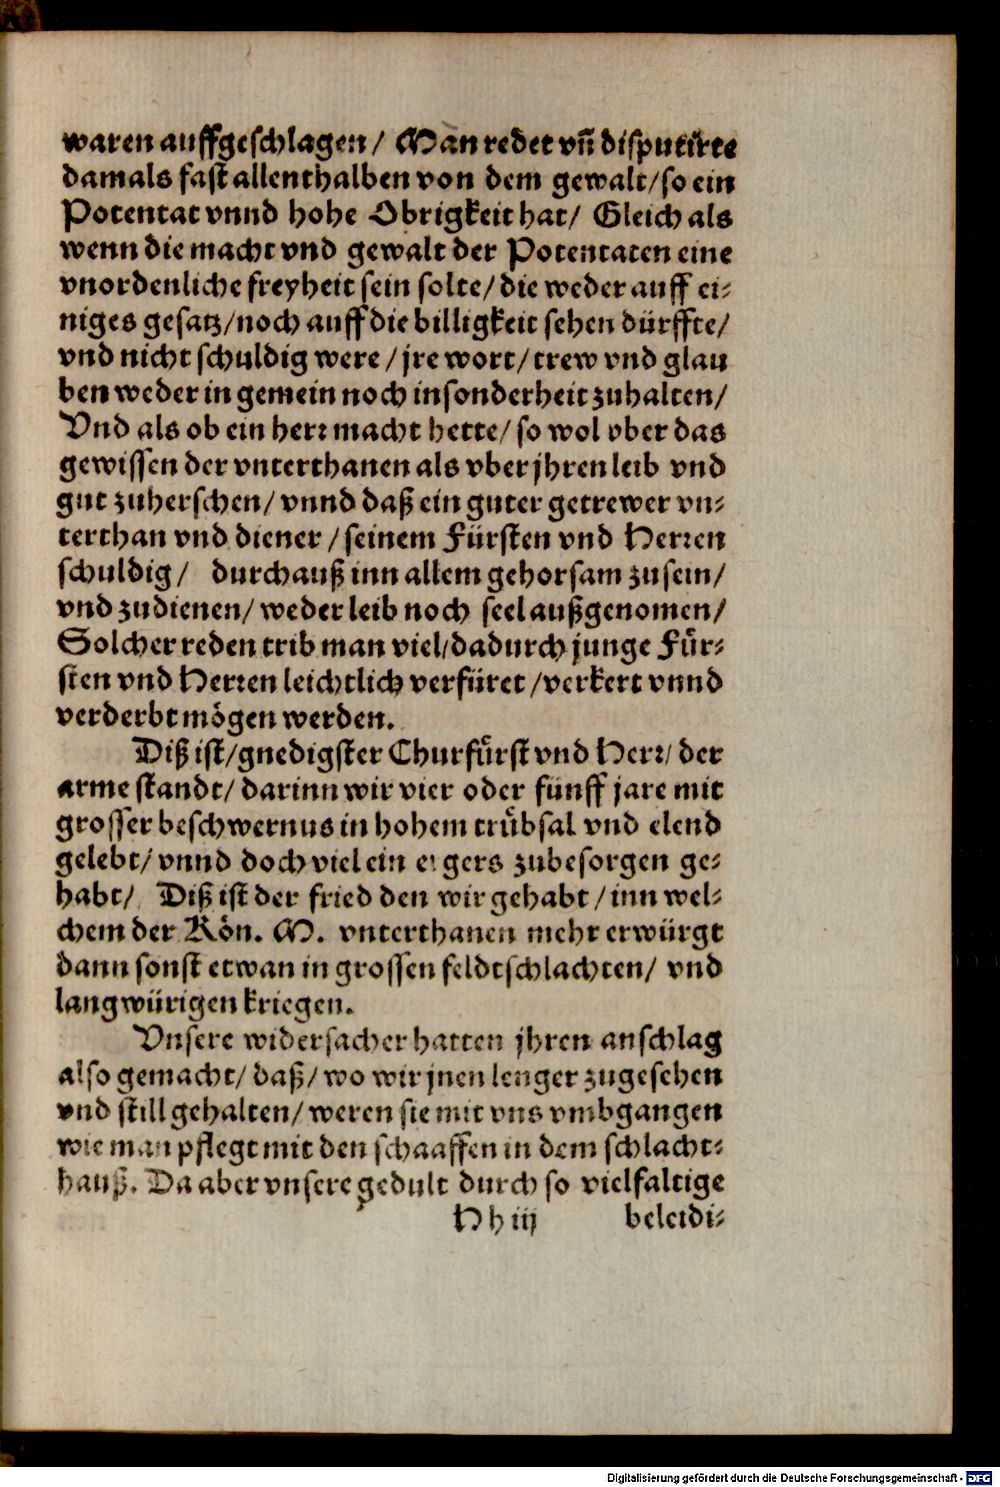 waren auffgeschlagen/ Man redet vñ disputirte
damals fast allenthalben von dem gewalt/so ein
Potentat vnnd hohe Obrigkeit hat/ Gleich als
wenn die macht vnd gewalt der Potentaten eine
vnordenliche freyheit sein solte/die weder auff ei-
niges gesatz/noch auff die billigkeit sehen dürffte/
vnd nicht schuldig were/jre wort/trew vnd glau
ben weder in gemein noch insonderheit zuhalten/
Vnd als ob ein herr macht hette/so wol vber das
gewissen der vnterthanen als vber jhren leib vnd
gut zuherschen/vnnd daß ein guter getrewer vn-
terthan vnd diener/seinem Fürsten vnd Herren
schuldig/ durchauß inn allem gehorsam zusein/
vnd zudienen/weder leib noch seel außgenomen/
Solcher reden trib man viel/dadurch junge Für-
sten vnd Herren leichtlich verfüret/verkert vnnd
verderbt mögen werden.
Diß ist/gnedigster Churfürst vnd Herr/der
arme standt/darinn wir vier oder fünff jare mit
grosser beschwernus in hohem trübsal vnd elend
gelebt/vnnd doch viel ein zubesorgen ge-
habt/ Diß ist der fried den wir gehabt/inn wel-
chem der Kön. M. vnterthanen mehr erwürgt
dann sonst etwan in grossen feldtschlachten/ vnd
langwürigen kriegen.
Vnsere widersacher hatten jhren anschlag
also gemacht/daß/wo wir jnen lenger zugesehen
vnd still gehalten/weren sie mit vns vmbgangen
wie man pflegt mit den schaaffen in dem schlacht-
hauß. Da aber vnsere gedult durch so vielfaltige
Hh iij beleidi-
Digitalisierung gefördert durch die Deutsche Forschungsgemeinschaft - DFG